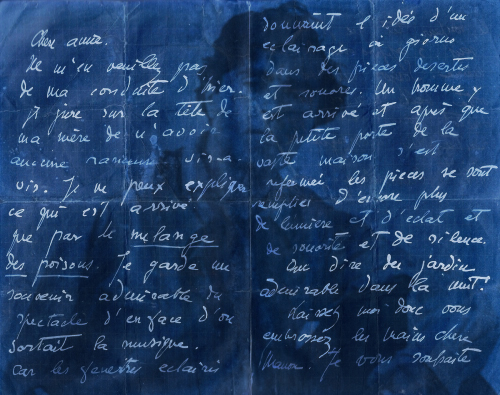 Cher amie.
Ne m'en veuillez pas
de ma conduite d'hier.
je jure sur la tête de
ma mère de n'avoir
aucune vis-à-
vis. Je ne peux expliquer
ce qui est arrivé
que par le melange
des poisons. Je garde un
souvenir admirable du
spectacle d'en face d'où
sortait la musique.
Car les fenetres eclairés
donnaient l'idée d'un
eclairage a giorno
dans des pieces desertes
et sonores. Un homme y
est arrivé et après que
la petite porte de la
vaste maison s'est
refermée les pieces se sont
remplies d'encore plus
de lumière et d'éclat et
de sonorité et de silence.
Que dire du jardin
admirable dans la nuit.
Laissez moi donc vous
embrassez les mains chere
Je vous souhaite